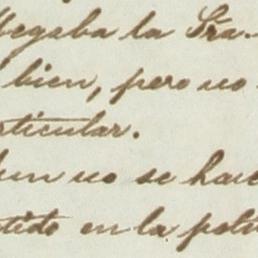 llegaba la Sra.
bien, pero no
rticular.
un no se hace
tido en la polí